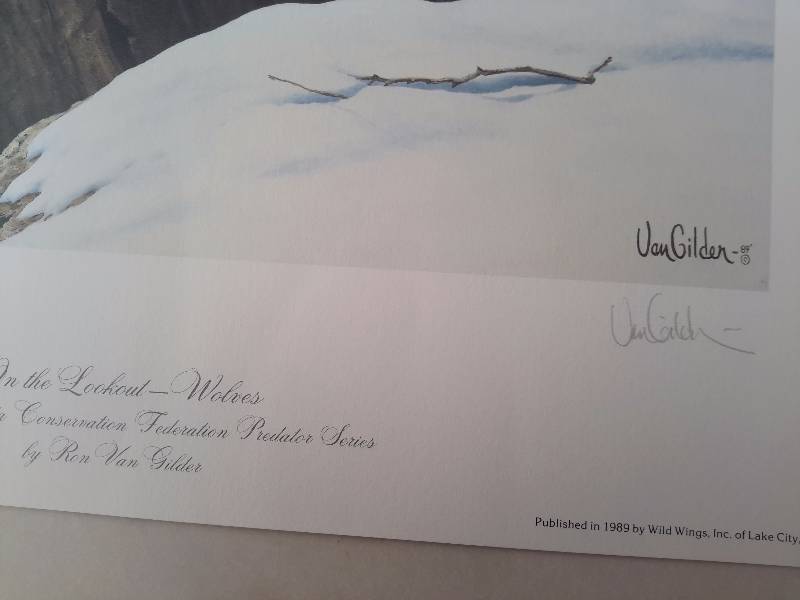 VanGilder-89 ©
VanGilder
On the Lookout—Wolves
Conservation Federation Predator Series
by Ron Van Gilder
Published in 1989 by Wild Wings, Inc. of Lake City,